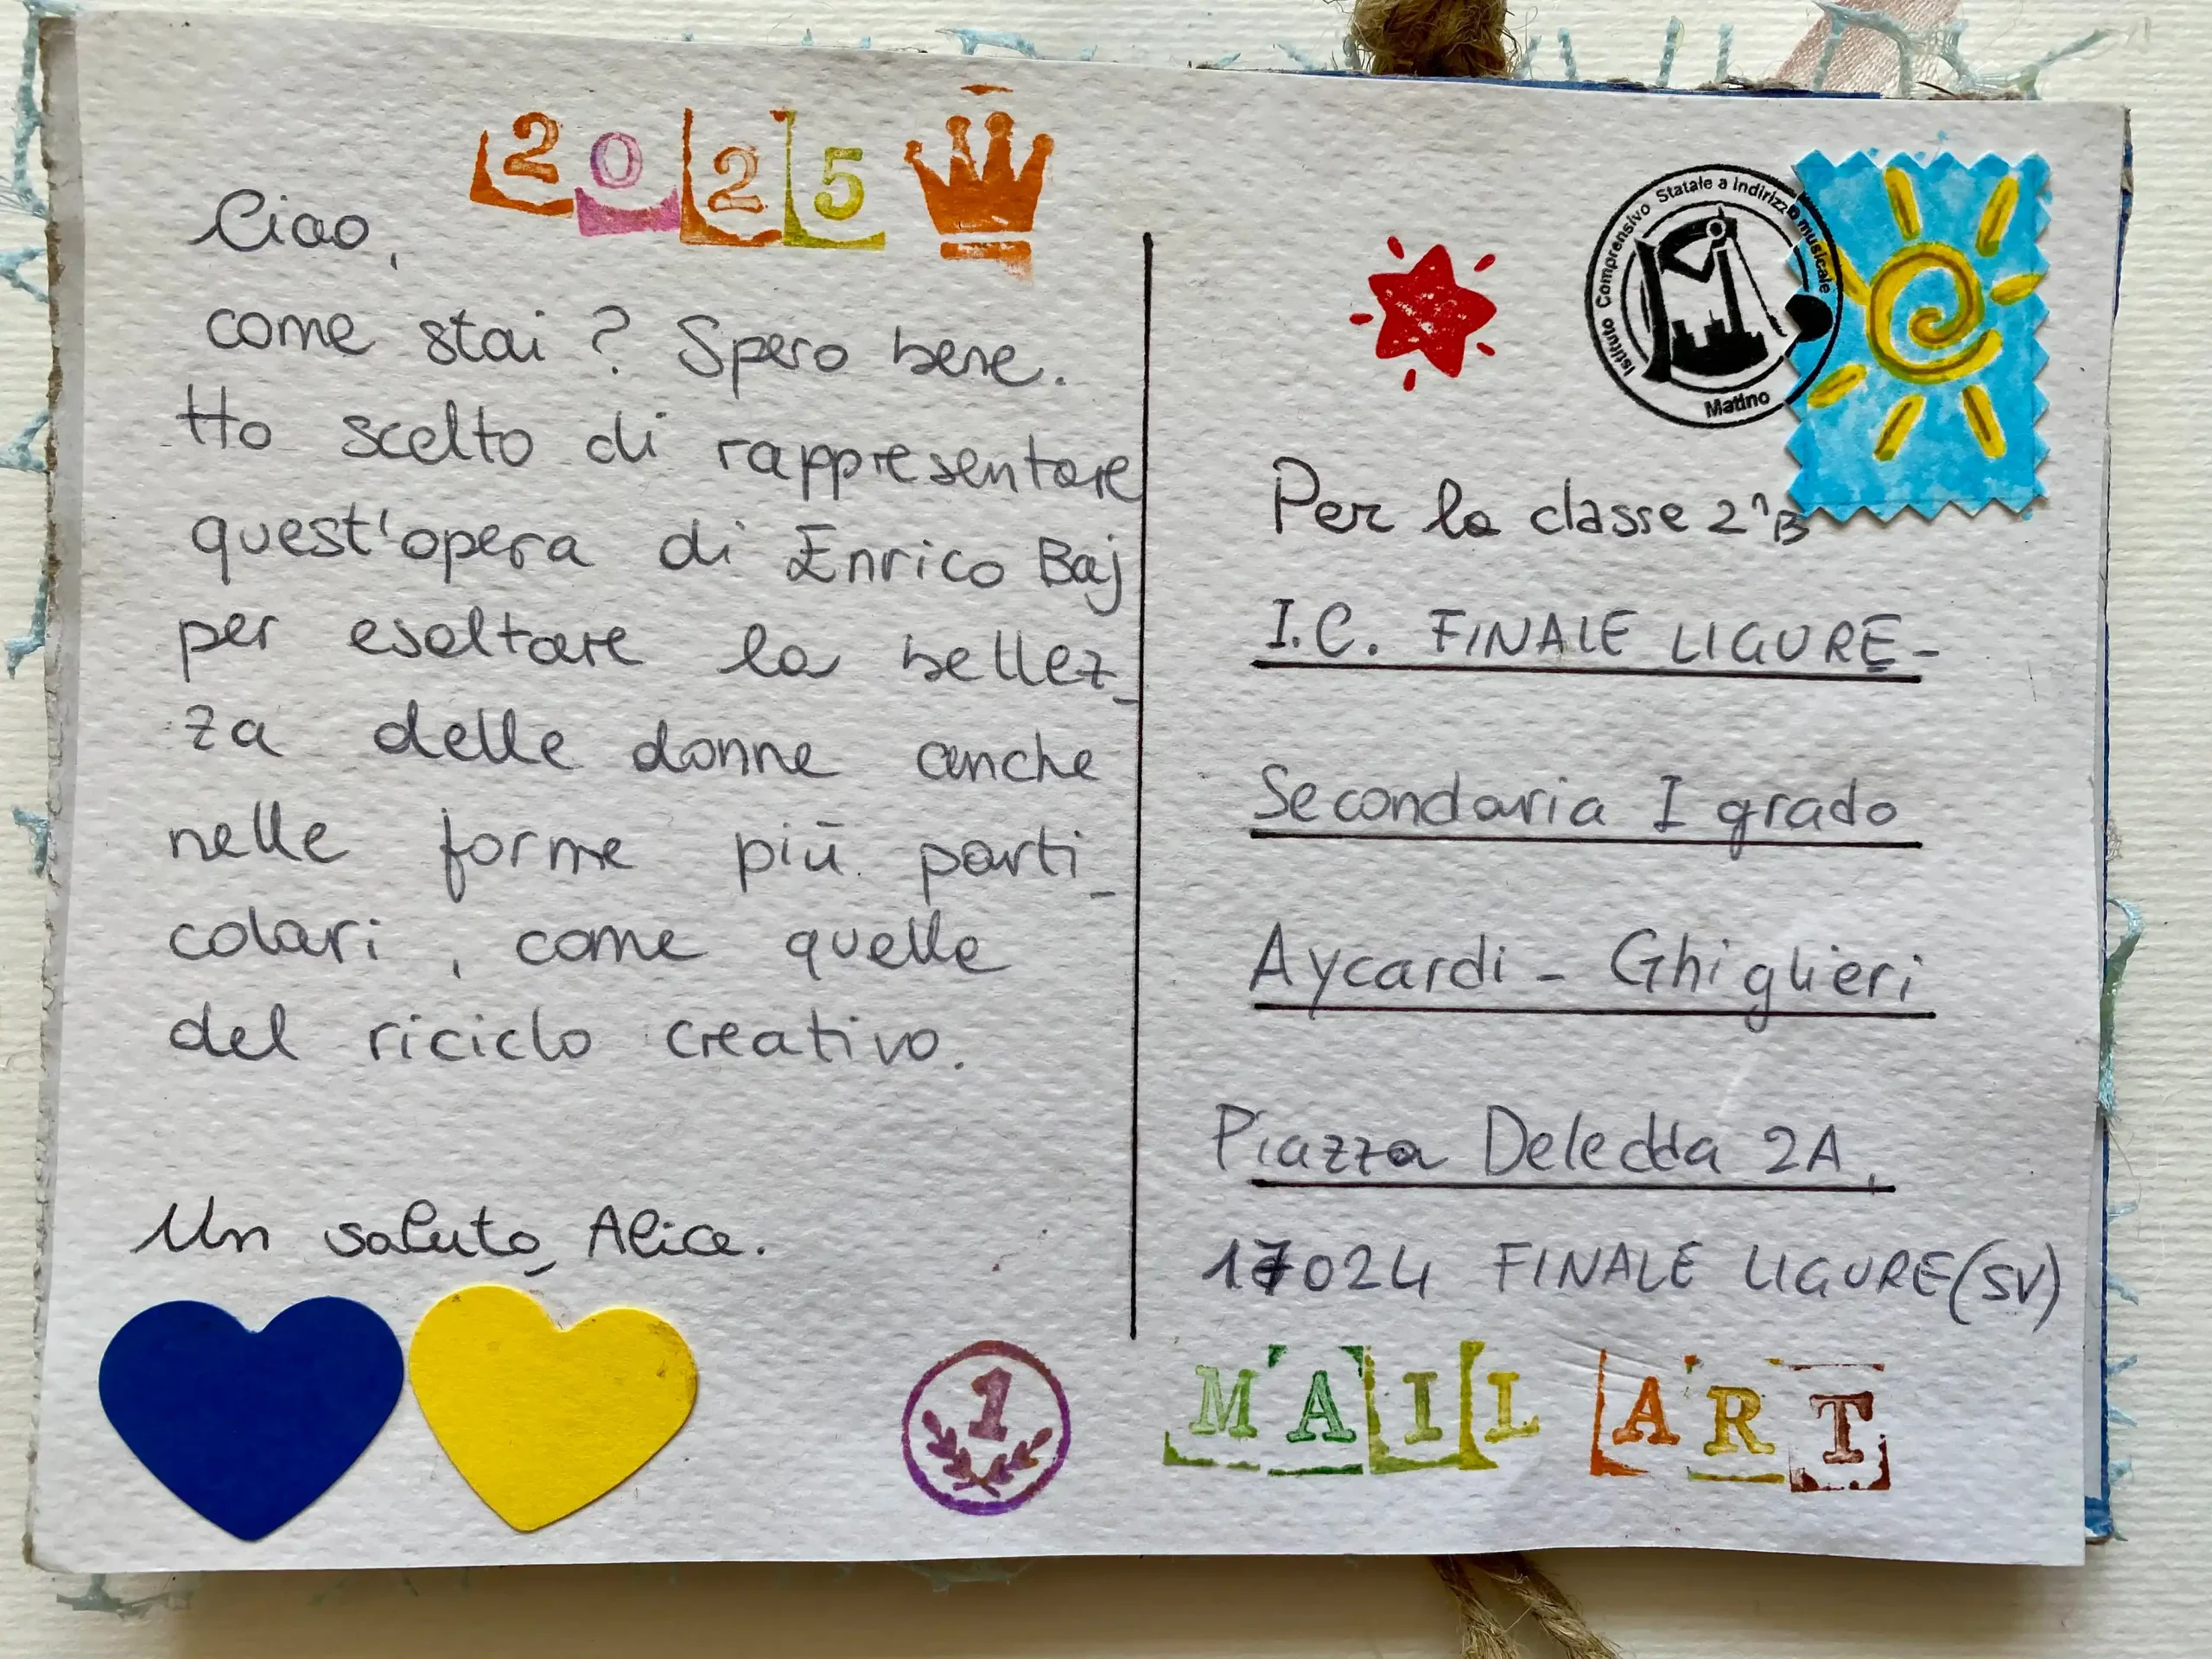 2025
Ciao,
come stai? Spero bene.
Ho scelto di rappresentare
quest'opera di Enrico Baj
per esaltare la bellez_
za delle donne anche
nelle forme più parti_
colari, come quelle
del riciclo creativo.
Un saluto, Alice.
1
Istituto Comprensivo Statale a indirizzo musicale
Matino
Per la classe 2^B
I.C. FINALE LIGURE-
Secondaria I grado
Aycardi - Ghiglieri
Piazza Deledda 2A,
17024 FINALE LIGURE (SV)
MAIL ART